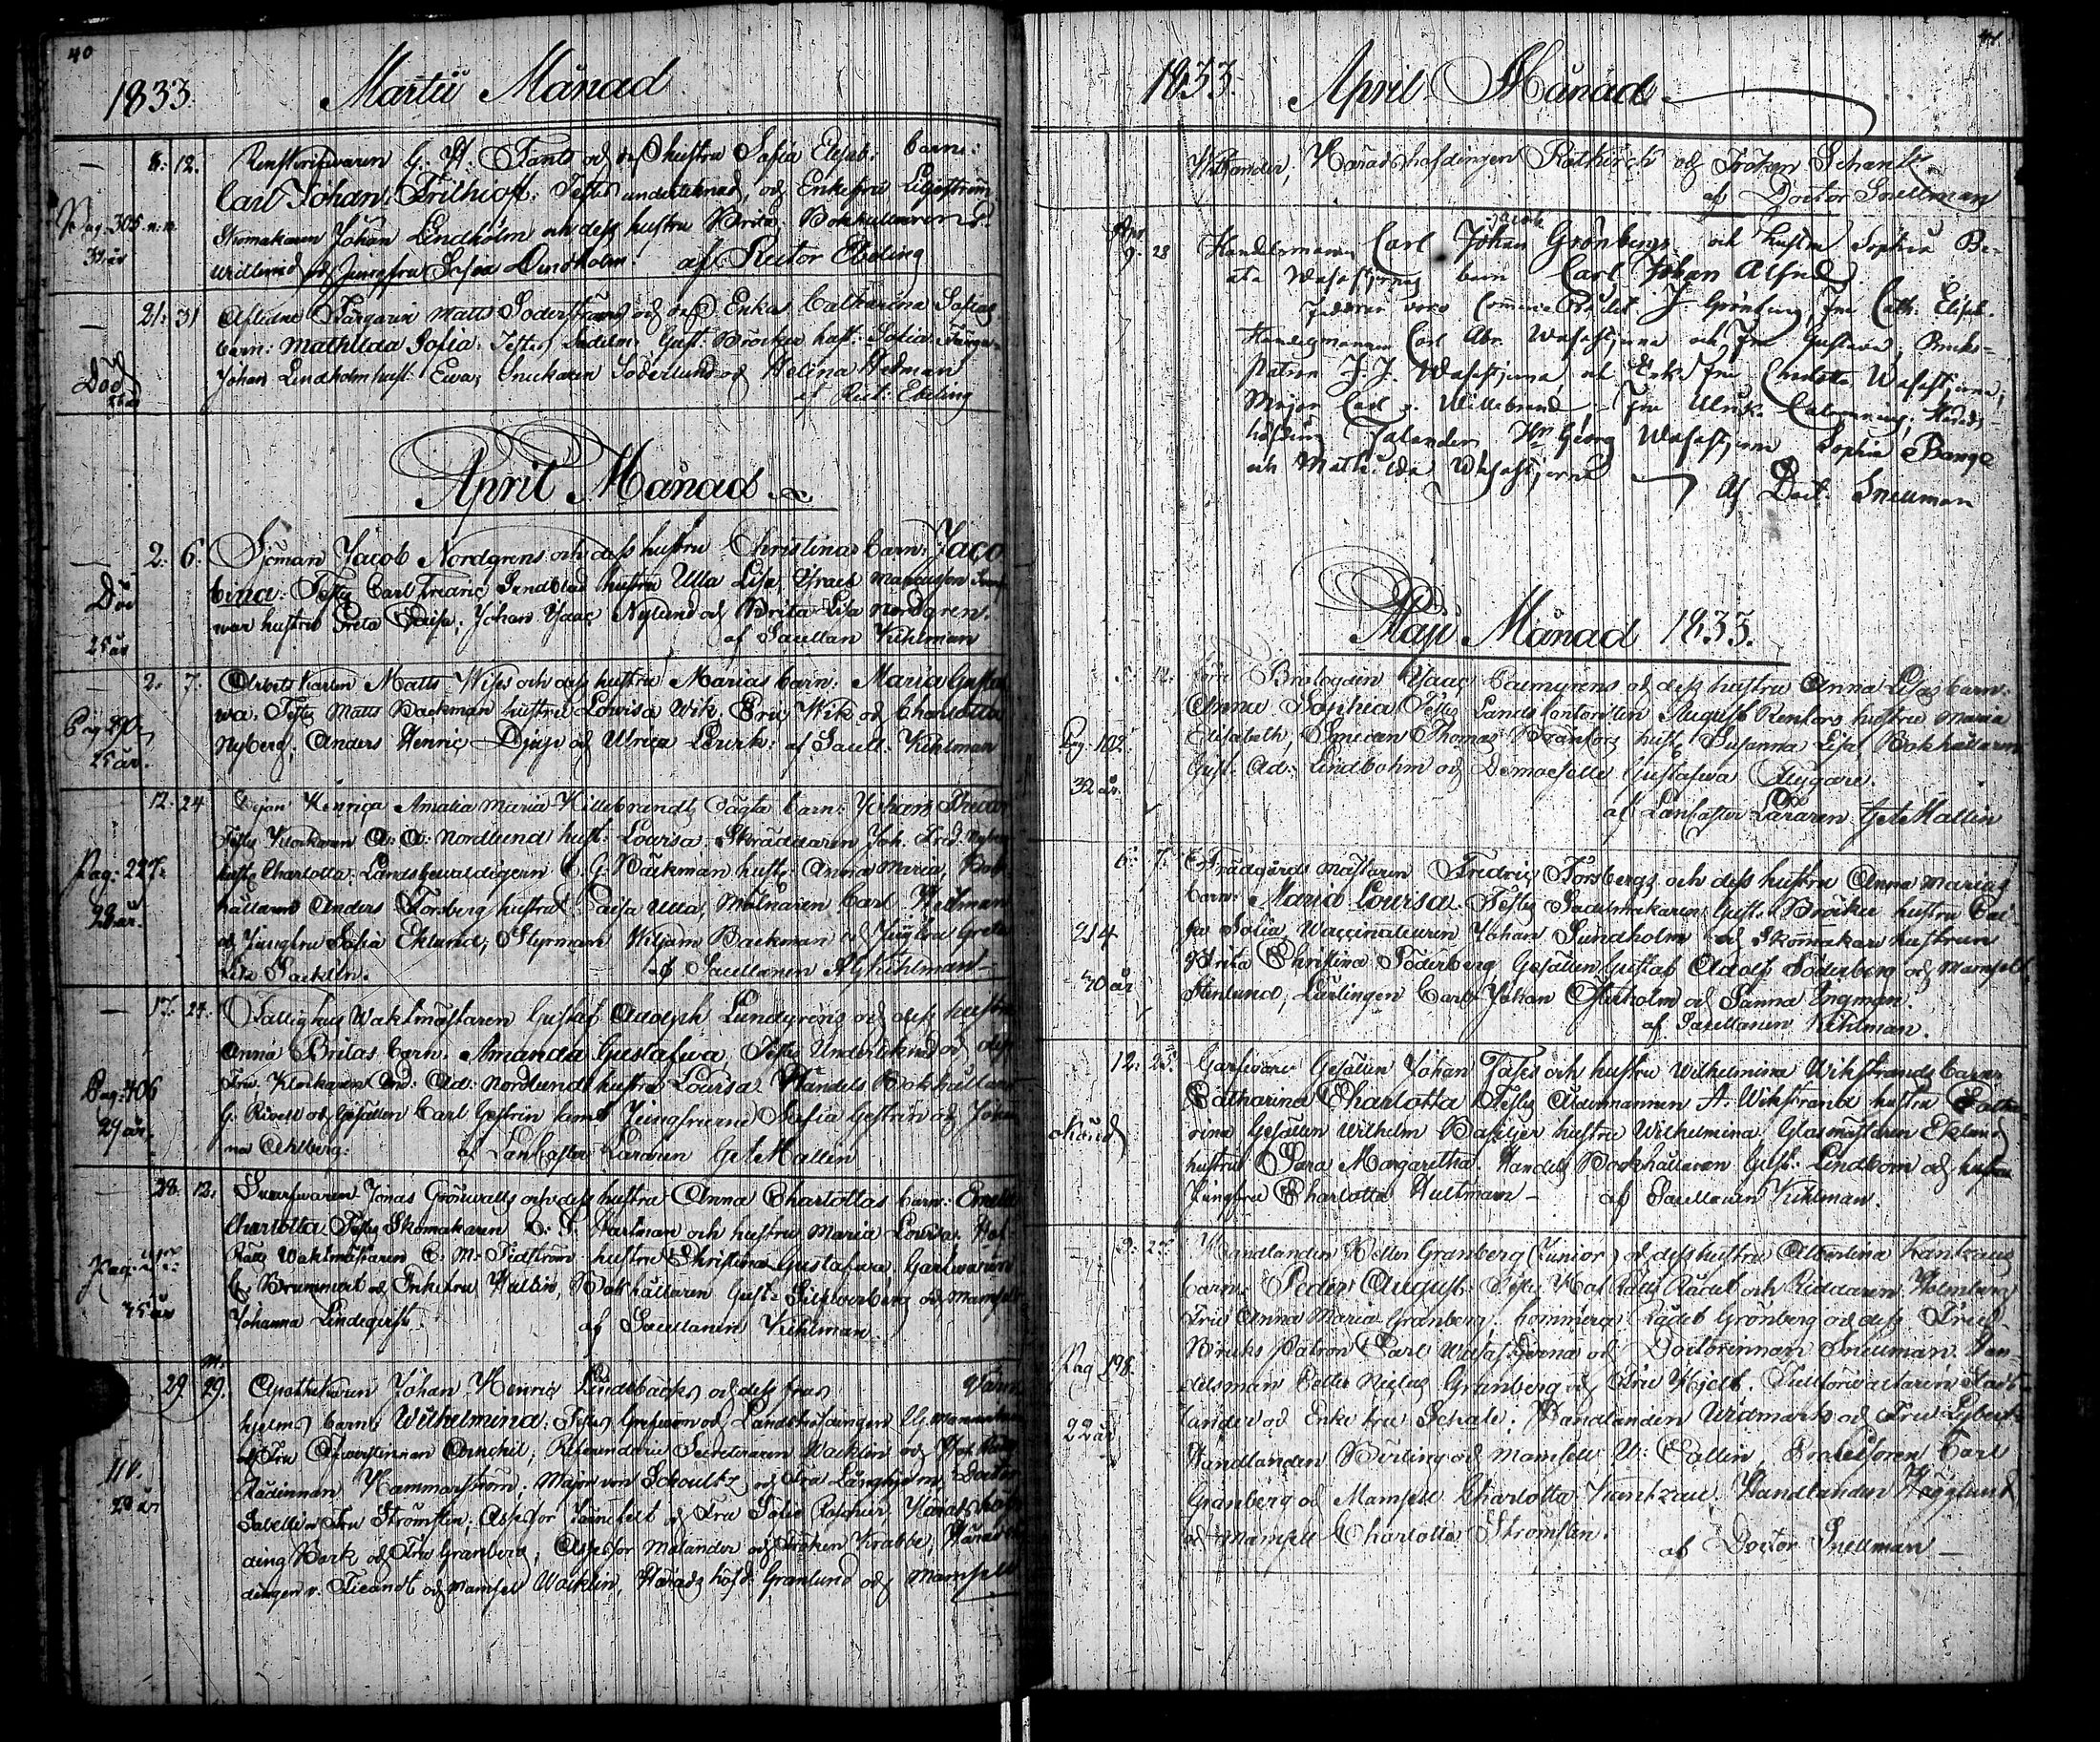 40
1833. Martii Månad
5: 12. Renskrifwaren G. H. Fants och dess hustru Sofia Elisab: barn:
Carl Johan Frithioff. Testes undertecknad, och Enkefru Liljeström
Pag. 305. Skomakaren Johan Lindholm och dess hustru Brita, Bokhållaren
och Jungfru Sofia Lindholm. af Rector Ebeling
21: 31 Aflidne Färgarin Matts Söderströms och dess Enkas Catharina Sofias
barn: Mathilda Sofia. Testes Sadelm. Gust. Bröcker hust: Sofia
Död Johan Lindholm hust: Ewa; Snickaren Söderlund och Helena Hedman
af Rect: Ebeling
April Månad
2: 6: Sjöman Jacob Nordgrens och dess hustru Christinas barn: Jaco
Död bina: Testes Carl Fredric Sandblad hustru Ulla Lisa, Israel Marcusson
war hustru Greta Caisa; Johan Isaac Nylund och Brita Lisa Nordgren.
25 år af Sacellan Kihlman
2. 7. Arbets Karlen Matts Wiks och dess hustru Marias barn: Maria Gusta
wa. Testes Matts Backman hustru Lowisa Wik, Eric Wik och Charlotta
Nyberg; Anders Henric Djup och Ulrica af Sacell: Kihlman
25 år.
12. 24 Pigan Henrica Amalia Maria Hillebrandts oägta barn: Johan
Testes Klockaren A: A: Nordlund hust: Lowisa; Skräddaren Joh. Fred:
Pag: 227. hust: Charlotta; Landsbewaldigern C. G. Backman hust: Anna Maria, Bok
hållaren Anders Forsberg hustru Caisa Ulla, Mölnaren Carl Hedman
28 år. och Jungfru Sofia Eklund; Styrman Wiljam Backman och Jungfru Greta
Lisa Sacklin. af Sacellanen A G Kihlman
17. 24. Fattighus Waktmästaren Gustaf Adolph Lundgrens och dess hustru
Anna Britas barn. Amanda Gustafwa. Testes Undertecknad och dess
Fru. Klockaren And: Ad: Nordlund hustru Lowisa. Handels Bokhållaren
Pag: 406 G. och Gesällen Carl Gestrin samt Jungfrurne Sofia Gestrin och Johan
29 år. na Ahlberg: af Lancaster Läraren Gest Mallin
28. 12. Swarfwaren Jonas Grönwalls och dess hustru Anna Charlottas barn: Emelie
Charlotta Testes Skomakaren C: G. Hartman och hustru Maria Lowisa. Hof
Rätts Waktmästaren C. M. Tidström hustru Christina Gustafwa. Garfwaren
Brummert och Enkefru Hallin, Bokhållaren Gust: Silfwerberg och Mamsell
35 år Johanna Lindeqvist. af Sacellanen Kihlman
29 29. Apothekaren Johan Henric Lindebäcks och dess frus
hjelms barn: Wilhelmina: Testes Grefwen och Landshöfdingen
och Fru Öfwerstinnan Aminoff; Referendarie Secreteraren Wacklin och Hof Rätts
110. Rådinnan Hammarström; Major von Schoultz och Fru Långhjelm, Doctor
28 år Sabelli och Fru Strömsten; Assessor Tannefelt och Fru Sofie Rotkirch, Härads höf
ding Bark och Fru Granberg; Assessor Molander och Fröken Krabbe, Härads
dingen v. Ticandt och Mamsell Wacklin, Härads höfd. Granlund och Mamsell
41
1833. April Månad
Wilander, Häradshöfdingen Rotkirch och Fröken Schantz
af Doctor Snellman
9. 28 Handelsmannen Carl Johan Jacob Grönbergs och hustru Sophia Be-
ata Wasastjernas barn Carl Johan Alfred.
Faddrar woro Commerce Rådet J. Grönberg, Fru Cath: Elisab.
Handelsmannen Carl Abr. Wasastjerna och Fru Gustava, Bruks-
Patron J. J. Wasastjerna och Enke Fru Charlotta Wasastjerna;
Major Carl v. Willebrand, Fru Ulrik. Calamnius; Härads-
höfding Falander Hr Georg Wasastjerna Sophia Bange
och Mathilda Wasastjerna af Doct. Snellman
Maji Månad 1833.
5: 12. Isaac Calmgrens och dess hustru Anna Lisas barn:
Anna Sophia Testes Lands Contoristen August Renfors hustru Maria
Pag. 102. Elisabeth, Smeden Thomas Brandfors hust: Susanna Lisa, Bokhållaren
32 år. Gust. Ad: Lindbohm och Demoiselle Gustafwa Flygare.
af Lancaster Läraren Gest Mallin
6. 7. Trädgårds mästaren Fredric Forsbergs och dess hustru Anna Marias
barn: Maria Lowisa. Testes Sadelmakaren Gust: Bröcker hustru Cai
214 sa Sofia, Waccinateuren Johan Sundholm och Skomakar hustrun
Brita Christina Söderberg Gesällen Gustaf Adolf Söderberg och Mamsell
40 år Stenlund; Lärlingen Carl Johan Öfverholm och Sanna Engman.
af Sacellanen Kihlman.
12: 25. Garfware Gesällen Johan Fåhes och hustru Wilhelmina Wikstrands barn
Catharina Charlotta Testes Åldermannen A. Wikstrand hustru Catha
rina Gesällen Wilhelm Basilier hustru Wilhelmina Glasmästaren Eklund
hustru Sara Margaretha. Handels Bokhållaren Gust: Lindbom och
Jungfru Charlotta Hultman af Sacellanen Kihlman.
9: 27. Handlanden Petter Granberg (Junior) och dess hustru Albertina Rantzaus
barn. Peder August. Testes Hof Rätts Rådet och Riddaren Holmberg
Fru Anna Maria Granberg. Commerce Rådet Grönberg och dess Fru
Pag 198. Bruks Patron Carl Wasastjerna och Doctorinnan Snellman. Han
delsman Petter Niclas Granberg och Fru Hjelt. Tullförwaltaren
lander och Enke fru Schale; Handlanden Widmark och Fru Lybeck
22 år Handlanden Bürling och Mamsell U: Gallin, Professoren Carl
Granberg och Mamsell Charlotta Rantzau, Handlanden Hägglund
och Mamsell Charlotta Strömsten.
af Doctor Snellman